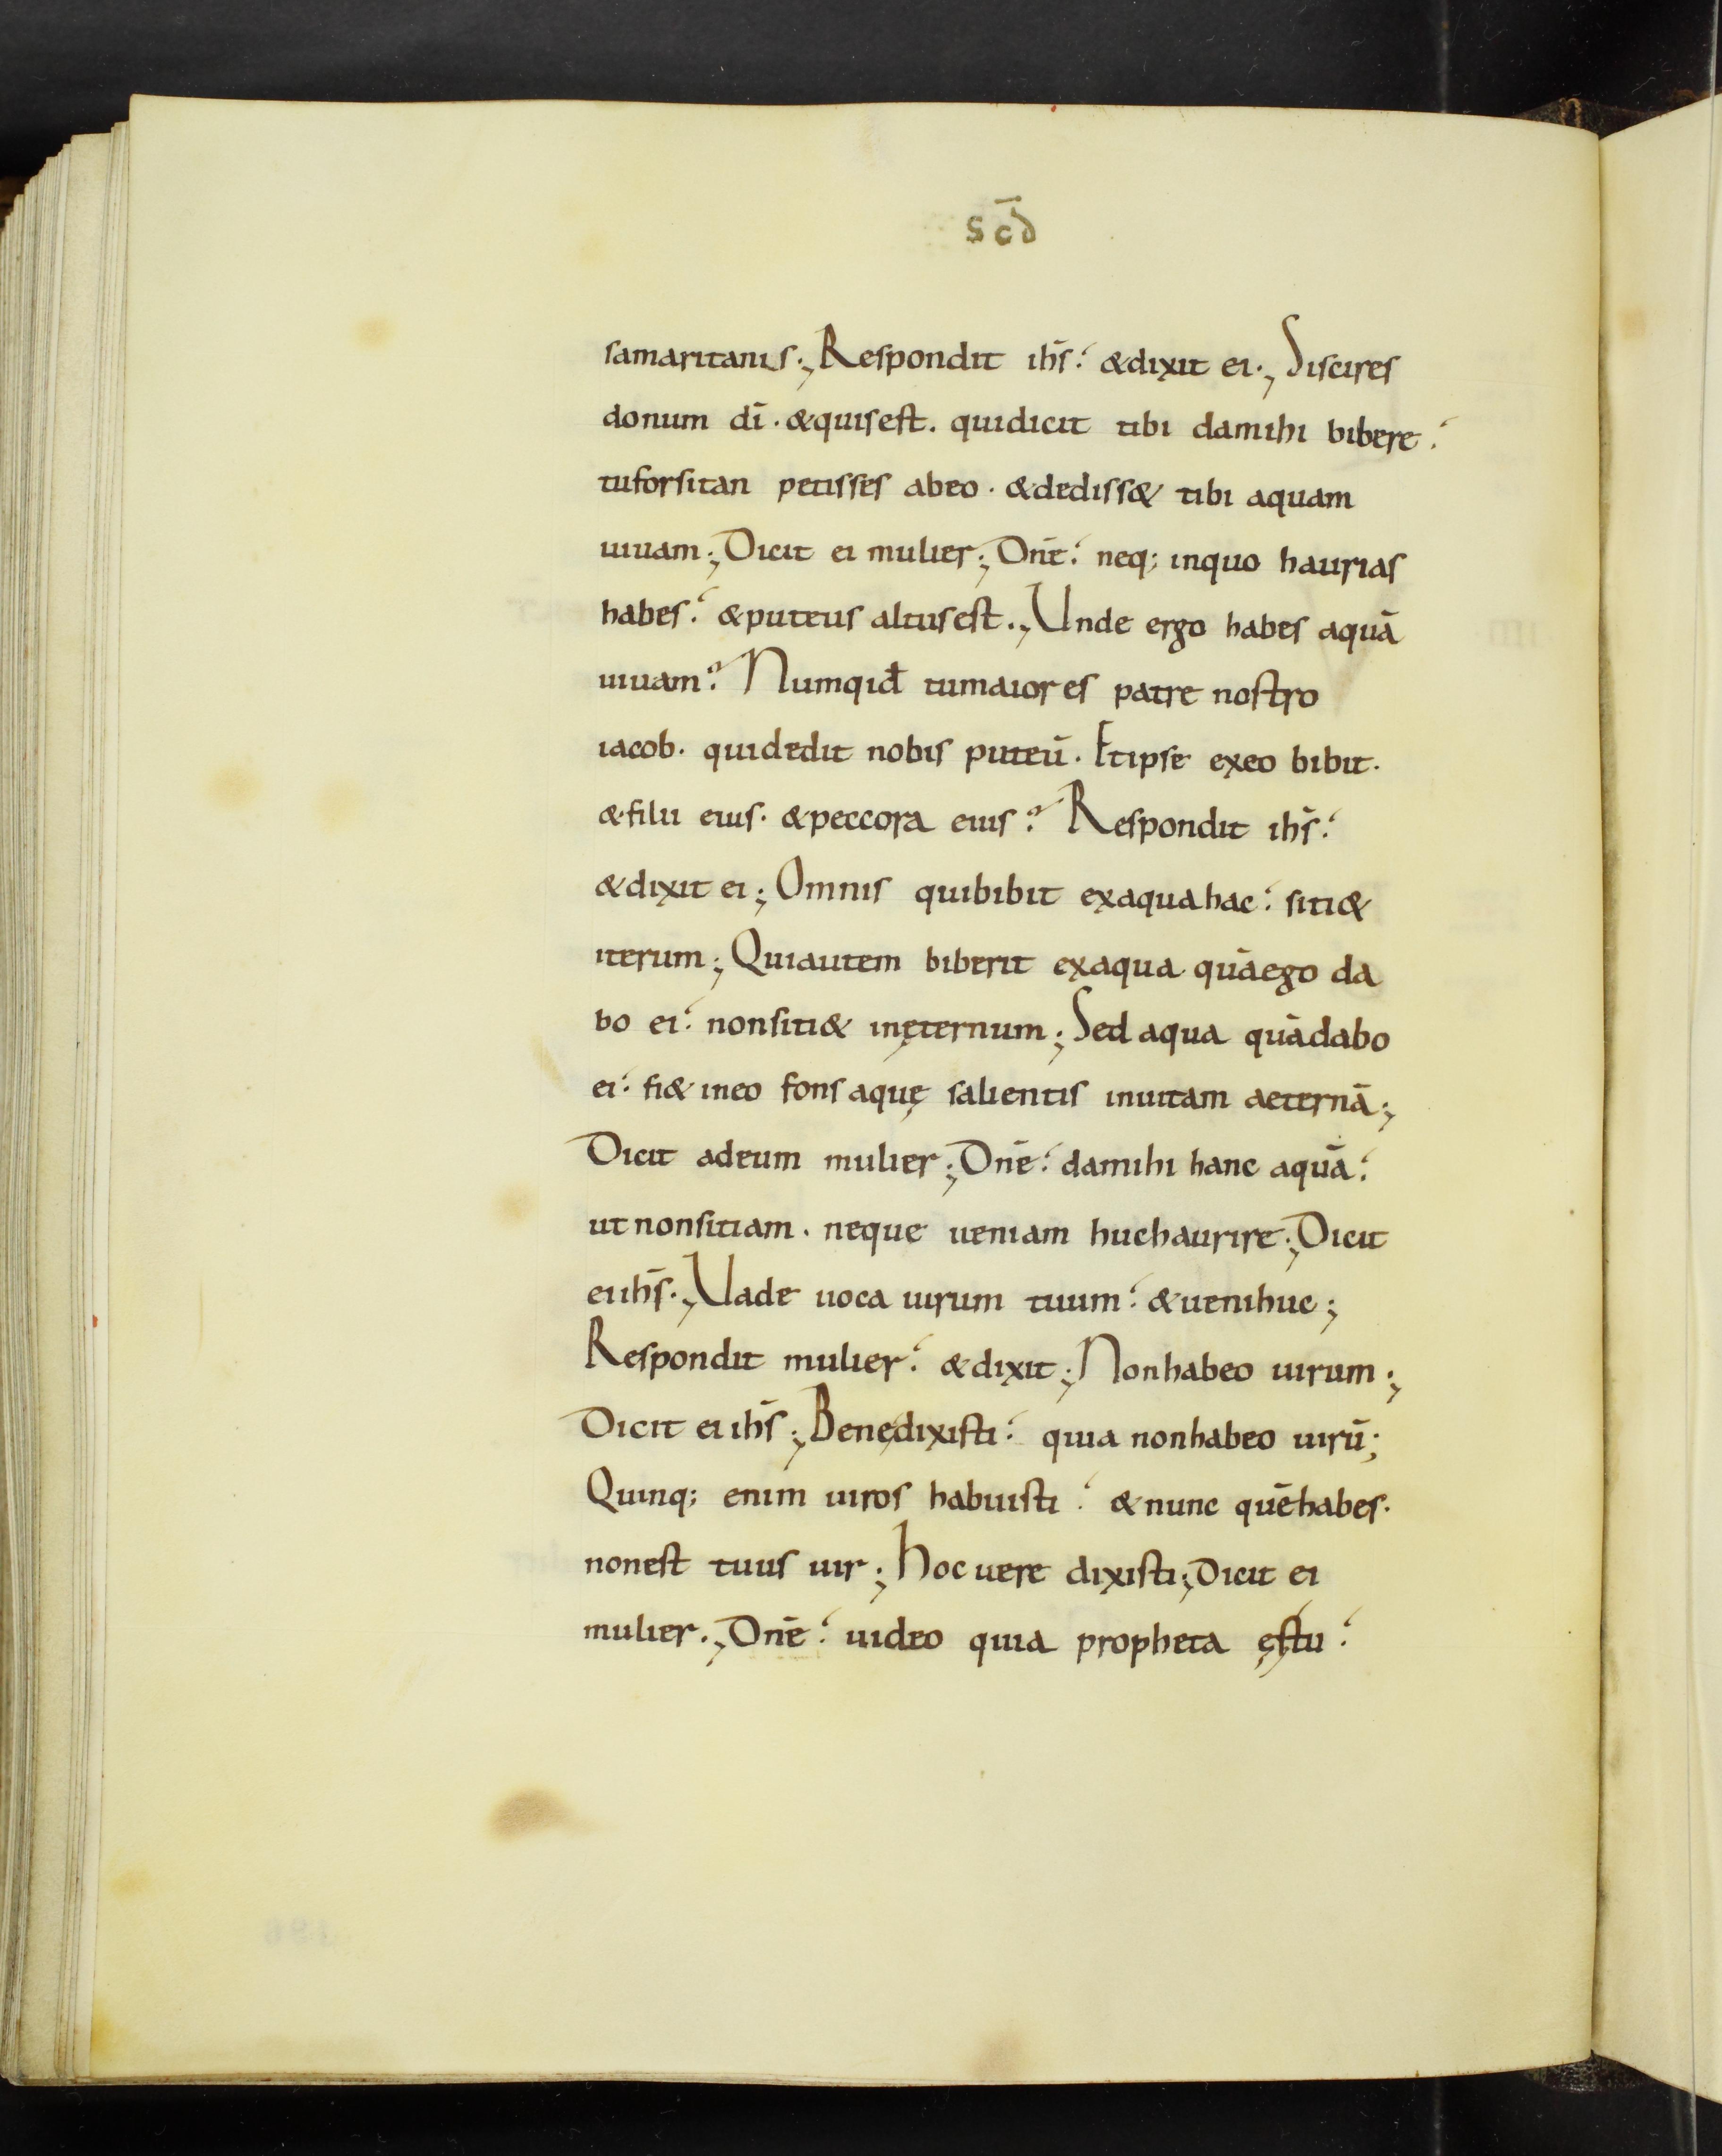 sc̄d
samaritanis·, Respondit ih̄s: &dixit ei·, Siscires
donum dī· &quisest. quidicit tibi damihi bibere:
tuforsitan petisses abeo· &dediss& tibi aquam
uiuam; Dicit ei mulier; Dn̄e: neq; inquo haurias
habes: &puteus altusest., Unde ergo habes aquā
uiuam? Numqid̄ tumaior es patre nostro
iacob· quidedit nobis puteū· Etipse exeo bibit·
&filii eius· &peccora eius? Respondit ih̄s:
&dixit ei; Omnis quibibit exaquahac: siti&
iterum; Quiautem biberit exaqua quāego da
bo ei: nonsiti& inęternum; Sed aqua quādabo
ei: fi& ineo fons aquę salientis inuitam aeternā;
Dicit adeum mulier; Dn̄e: damihi hanc aquā:
ut nonsitiam· neque ueniam huchaurire; Dicit
eiih̄s·, Uade uoca uirum tuum: &uenihuc;
Respondit mulier: &dixit; Nonhabeo uirum;
Dicit ei ih̄s; Benędixisti: quia nonhabeo uirū;
Quinq; enim uiros habuisti: &nunc quēhabes·
nonest tuus uir; hoc uere dixisti; Dicit ei
mulier·, Dn̄e: uideo quia propheta ęstu: